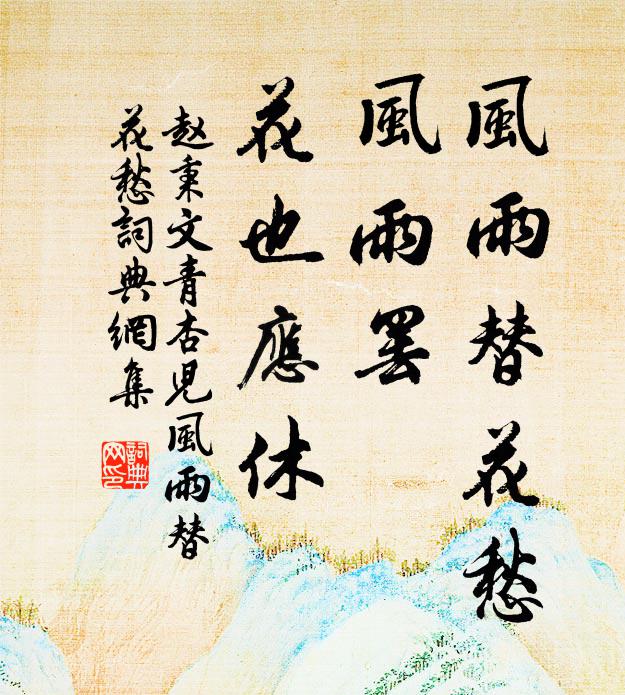 風雨替花愁
風雨罷
花也應休
赵秉文青杏児風雨替
花愁詞典網集
詞典
网印